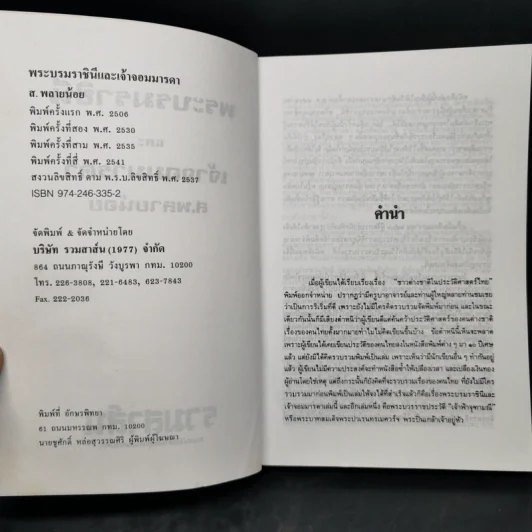 พระบรมราชินีและเจ้าจอมมารดา
ส.พลายน้อย
พิมพ์ครั้งแรก พ.ศ. 2506
พิมพ์ครั้งที่สอง พ.ศ. 2530
พิมพ์ครั้งที่สาม พ.ศ. 2535
พิมพ์ครั้งที่สี่ พ.ศ. 2541
สงวนลิขสิทธิ์ ตาม พ.ร.บ.ลิขสิทธิ์ พ.ศ. 2537
ISBN 974-246-335-2
จัดพิมพ์ & จัดจำหน่ายโดย
บริษัท รวมสาส์น (1977) จำกัด
864 ถนนภาณุรังษี วังบูรพา กทม. 10200
โทร. 226-3808, 221-6483, 623-7843
Fax. 222-2036
พิมพ์ที่ อักษรพิทยา
61 ถนนมหรรณพ กทม. 10200
นายชูศักดิ์ หล่อสุวรรณศิริ ผู้พิมพ์ผู้โฆษณา
คำนำ
เมื่อผู้เขียนได้เรียบเรียงเรื่อง "ชาวต่างชาติในประวัติศาสตร์ไทย"
พิมพ์ออกจำหน่าย ปรากฏว่ามีครูบาอาจารย์และท่านผู้ใหญ่หลายท่านชมเชย
ว่าเป็นการริเริ่มที่ดี เพราะยังไม่มีใครรวบรวมจัดพิมพ์มาก่อน และในขณะ
เดียวกันนั้นก็มีเสียงตำหนิว่าผู้เขียนดีแต่ค้นคว้าประวัติศาสตร์ของคนต่างชาติ
เรื่องของคนไทยตั้งมากมายทำไมไม่คิดเขียนขึ้นบ้าง ข้อตำหนินี้เห็นจะพลาด
เพราะผู้เขียนได้เคยเขียนประวัติของคนไทยลงในหนังสือพิมพ์ต่าง ๆ มา ๑๐ ปีเศษ
แล้ว แต่ยังมิได้คิดรวบรวมพิมพ์เป็นเล่ม เพราะเห็นว่ามีนักเขียนอื่น ๆ ทำกันอยู่
แล้ว ผู้เขียนไม่มีความประสงค์จะทำหนังสือซ้ำให้เปลืองเวลา และเปลืองเงินทอง
ผู้อ่านโดยใช่เหตุ แต่ถึงกระนั้นก็ยังคิดที่จะรวบรวมเรื่องของคนไทย ที่ยังไม่มีใคร
รวบรวมมาก่อนพิมพ์เป็นเล่มให้จงได้ที่สำเร็จแล้วก็คือเรื่องพระบรมราชินีและ
เจ้าจอมมารดาเล่มนี้ และอีกเล่มหนึ่ง คือพระบวรราชประวัติ "เจ้าฟ้าจุฑามณี"
หรือพระบาทสมเด็จพระปาเรนทรเมศวร์ฯ พระปิ่นเกล้าเจ้าอยู่หัว